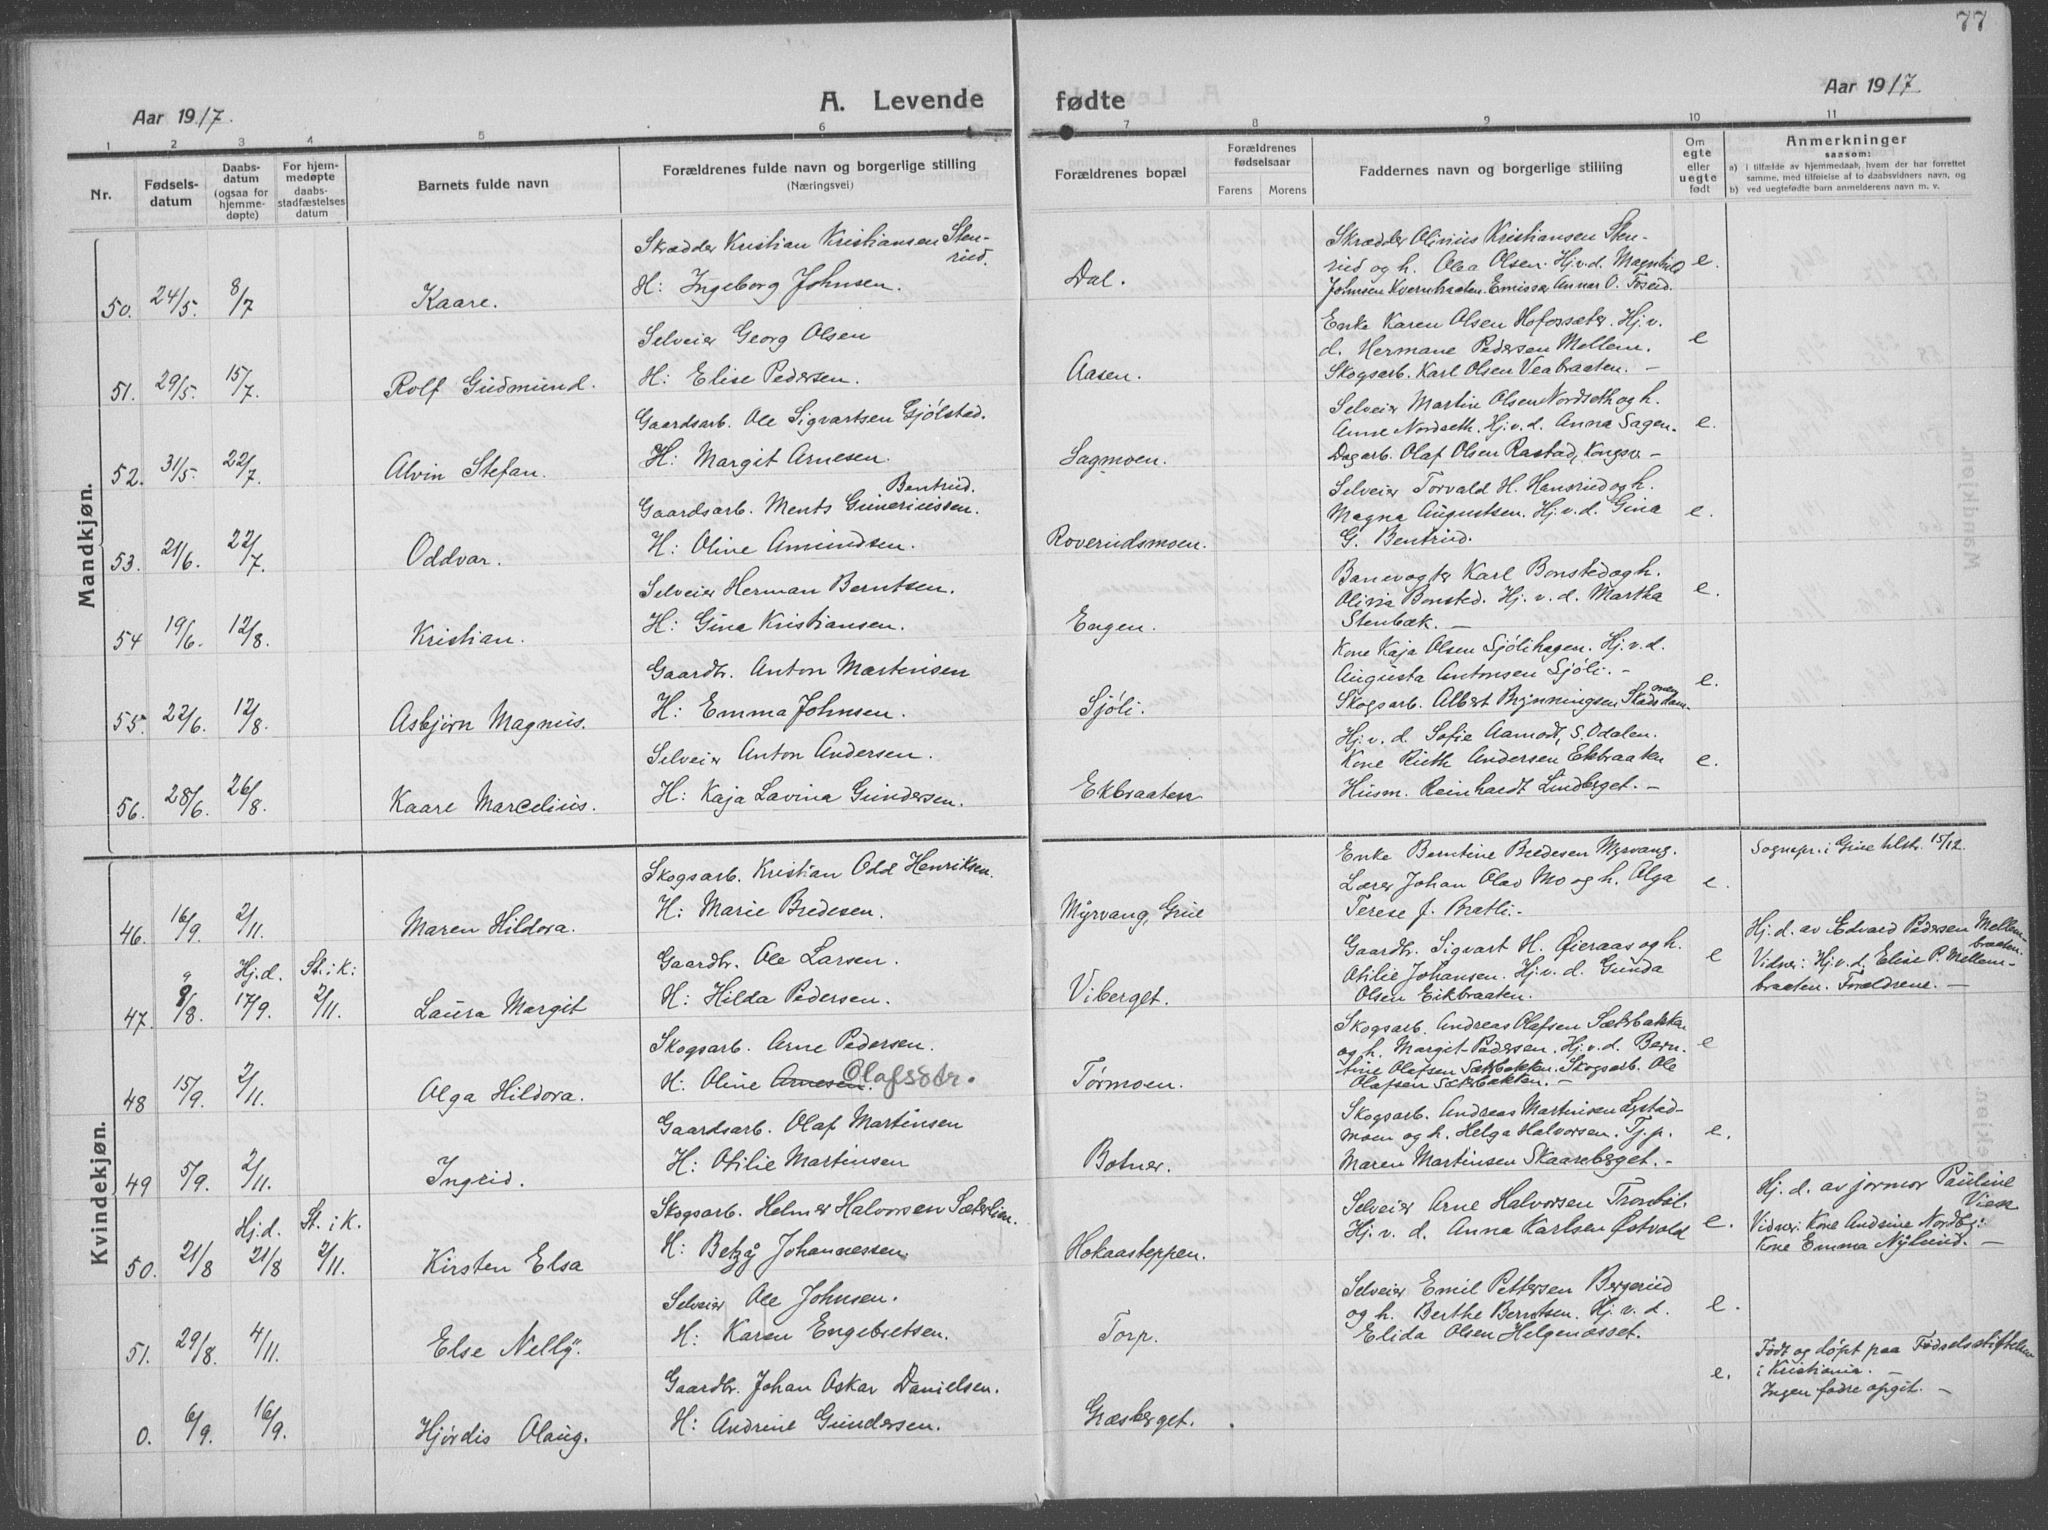 77
Aar 1917.
A. Levende
fødte
Aar 1917
1 2 3 4 5 6 7 8 9 10 11
Nr.
Fødsels-
datum
Daabs-
datum
(ogsaa for
hjemme-
døpte)
For hjem-
medøpte
daabs-
stadfæstelses
datum
Barnets fulde navn
Forældrenes fulde navn og borgerlige stilling
(Næringsvei)
Forældrenes bopæl
Forældrenes
fødselsaar
Farens Morens
Faddernes navn og borgerlige stilling
Om
egte
eller
uegte
født
Anmerkninger
saasom:
a) i tilfælde av hjemmedaab, hvem der har forrettet
samme, med tilføielse af to daabsvidners navn, og
b) ved uegtefødte barn anmelderens navn m. v.
Mandkjøn.
50. 24/5. 8/7 Kaare.
Skrædder Kristian Kristiansen Sten-
rud.
H: Ingeborg Johnsen.
Dal.
Skrædder Olinius Kristiansen Sten-
rud og h. Olea Olsen. Hj.v.d. Magnhild
Johnsen Kvernbraaten. Emissær Annar O. Foseid.
e.
51. 29/5. 15/7. Rolf Gudmund.
Selveier Georg Olsen
H: Elise Pedersen.
Aasen.
Enke Karen Olsen Hofossæter. Hj.v.
d. Hermane Pedersen Mellem.
Skogsarb. Karl Olsen Veabraaten. –
e
52. 31/5. 22/7. Alvin Stefan.
Gaardsarb. Ole Sigvartsen Gjølstad.
H: Margit Arnesen.
Sagmoen.
Selveier Martin Olsen Nordseth og h.
Anne Nordseth. Hj.v.d. Anna Sagen.
Dagarb. Olaf Olsen Rastad, Kongsv. –
e.
53. 21/6. 22/7. Oddvar.
Bentrud.
Gaardsarb. Ments Guneriussen.
H: Oline Amundsen.
Roverudsmoen.
Selveier Torvald H. Hansrud og h.
Magna Augustsen. Hj.v.d. Gina
G. Bentrud.
e.
54 19/6. 12/8. Kristian.
Selveier Herman Berntsen.
H: Gina Kristiansen.
Engen.
Banevogter Karl Bonsted og h.
Olivia Bonsted. Hj. v. d. Martha
Stenbæk. –
e.
55. 22/6. 12/8. Asbjørn Magnus.
Gaardbr. Anton Martinsen
H: Emma Johnsen.
Sjøli.
Kone Kaja Olsen Sjølihagen. Hj.v.d.
Augusta Antonsen Sjøli. –
Skogsarb. Albert Brynningsen
e.
56. 28/6. 26/8. Kaare Marcelius.
Selveier Anton Andersen.
H: Kaja Lavina Gundersen.
Ekbraaten
Hj.v.d. Sofie Aamodt, S. Odalen.
Kone Ruth Andersen Ekbraaten
Husm. Reinhardt Lindberget. –
e.
Kvindekjøn.
46. 16/9. 2/11. Maren Hildora.
Skogsarb. Kristian Odd Henriksen.
H: Marie Bredesen.
Myrvang, Grue
Enke Berntine Bredesen Myrvang.
Lærer Johan Olav Mo og h. Olga
Terese J. Bratli. –
e.
Sognepr. i Grue tilstr. 15/12.
47. 9/8. Hj.d. 17/9. St. i k: 2/11. Laura Margit
Gaardbr. Ole Larsen.
H: Hilda Pedersen.
Viberget.
Gaardbr. Sigvart H. Øieraas og h.
Otilie Johansen. Hj.v.d. Gunda
Olsen Eikbraaten.
e
Hj.d. av Edvard Pedersen Mellem-
braaten.
Vidner: Hj.v.d. Elise P. Mellem-
braaten. Forældrene. –
48 15/9. 2/11. Olga Hildora.
Skogsarb. Arne Pedersen.
H: Oline Arnesen. Olafsdtr.
Tørmoen.
Skogsarb. Andreas Olafsen Sæterbakken
og h. Margit Pedersen. Hj.v.d. Bern-
tine Olafsen Sæterbakken. Skogsarb. Ole
Olafsen Sæterbakken. –
e
49 5/9. 2/11. Ingrid.
Gaardsarb. Olaf Martinsen
H: Otilie Martinsen
Botner.
Skogsarb. Andreas Martinsen Lystad-
moen og h. Helga Halvorsen. Tj.p.
Maren Martinsen Skaareberget. –
e.
50. 21/8 Hj.d. 21/8 St. i k. 2/11. Kirsten Elsa
Skogsarb. Helmer Halvorsen Sæterlien.
H: Betzy Johannessen.
Hokaasteppen.
Selveier Arne Halvorsen Tronbøl.
Hj. v. d. Anna Karlsen Østvold
e.
Hj. d. av jormor Pauline
Vien
Vidner: Kone Andrine Nordby:
Kone Emma Nylund. –
51. 29/8. 4/11. Else Nelly.
Selveier Ole Johnsen.
H: Karen Engebretsen.
Torp.
Selveier Emil Pettersen Bergerud
og h. Berthe Berntsen. Hj. v. d.
Elida Olsen Helgenosset.
e.
0. 6/9. 16/9. Hjørdis Olaug.
Gaardbr. Johan Oskar Danielsen.
H: Andrine Gundersen.
Græsberget.
e.
Født og døpt paa Fødselsstiftelsen
i Kristiania.
Ingen fadre opgit. –